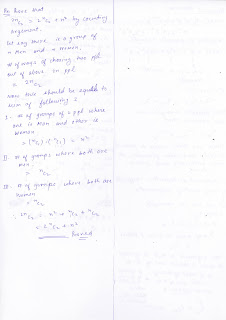 have that
²ⁿC₂ = 2 ⁿC₂ + n² by counting
argument.
let say there is a group of
n Men and n women.
# of ways of choosing two ppl
out of above 2n ppl
= ²ⁿC₂
Now this should be equal to
sum of following 3
I - # of groups of 2 ppl where
one is Man and other is
Woman
= (ⁿC₁) · (ⁿC₁) = n²
II - # of groups where both are
men.
= ⁿC₂
III - # of groups where both are
woman
= ⁿC₂
∴ ²ⁿC₂ = n² + ⁿC₂ + ⁿC₂
= 2 ⁿC₂ + n²
Proved